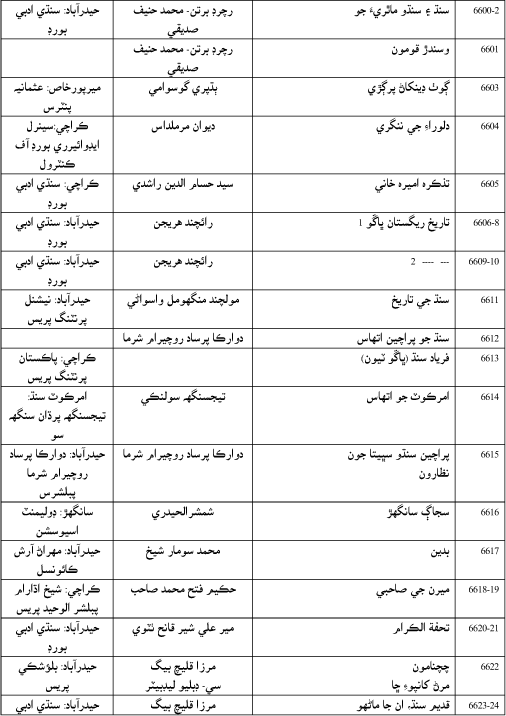 6600-2 سنڌ ۽ سنڌو ماٿريءَ جو رچرڊ برٽن- محمد حنيف حيدرآباد: سنڌي ادبي
صديقي بورڊ
6601 وسندڙ قومون رچرڊ برٽن- محمد حنيف
صديقي
6603 ڳوٺ ڍينڪاڻ پرڳڙي ٻڌپري گوسوامي ميرپورخاص: عثمانيہ
پنٽرس
6604 دلوراءِ جي ننگري ديوان مرملداس ڪراچي:سينرل
ايڊوائيرري بورڊ آف
ڪنٽرول
6605 تذڪره اميره خاني سيد حسام الدين راشدي ڪراچي: سنڌي ادبي
بورڊ
6606-8 تاريخ ريگستان ڀاڱو 1 رائچند هريجن حيدرآباد: سنڌي ادبي
بورڊ
6609-10 --- ---- 2 رائچند هريجن حيدرآباد: سنڌي ادبي
بورڊ
6611 سنڌ جي تاريخ مولچند منگهومل واسواڻي حيدرآباد: نيشنل
پرنٽنگ پريس
6612 سنڌ جو پراچين اتهاس دوارڪا پرساد روچيرام شرما
6613 فرياد سنڌ (ڀاڱو ٽيون) ڪراچي: پاڪستان
پرنٽنگ پريس
6614 امرڪوٽ جو اتهاس تيجسنگهہ سولنڪي امرڪوٽ سنڌ:
تيجسنگهہ پرڌان سنگهہ
سو
6615 پراچين سنڌو سڀيتا جون دوارڪا پرساد روچيرام شرما حيدرآباد: دوارڪا پرساد
نظارون روچيرام شرما
پبلشرس
6616 سجاڳ سانگهڙ شمشرالحيدري سانگهڙ: ڊوليمنٽ
اسيوسشن
6617 بدين محمد سومار شيخ حيدرآباد: مهراڻ آرش
ڪائونسل
6618-19 ميرن جي صاحبي حڪيم فتح محمد صاحب ڪراچي: شيخ اڌارام
پبلشر الوحيد پريس
6620-21 تحفة الڪرام مير علي شير قانح ٺٽوي حيدرآباد: سنڌي ادبي
بورڊ
6622 چچنامون مرزا قليچ بيگ حيدرآباد: بلوَشڪي
مرڻ کانپوءِ ڇا سي- ڊبليو ليڊبيٽر پريس
6623-24 قديم سنڌ، ان جا ماڻهو مرزا قليچ بيگ حيدرآباد: سنڌي ادبي